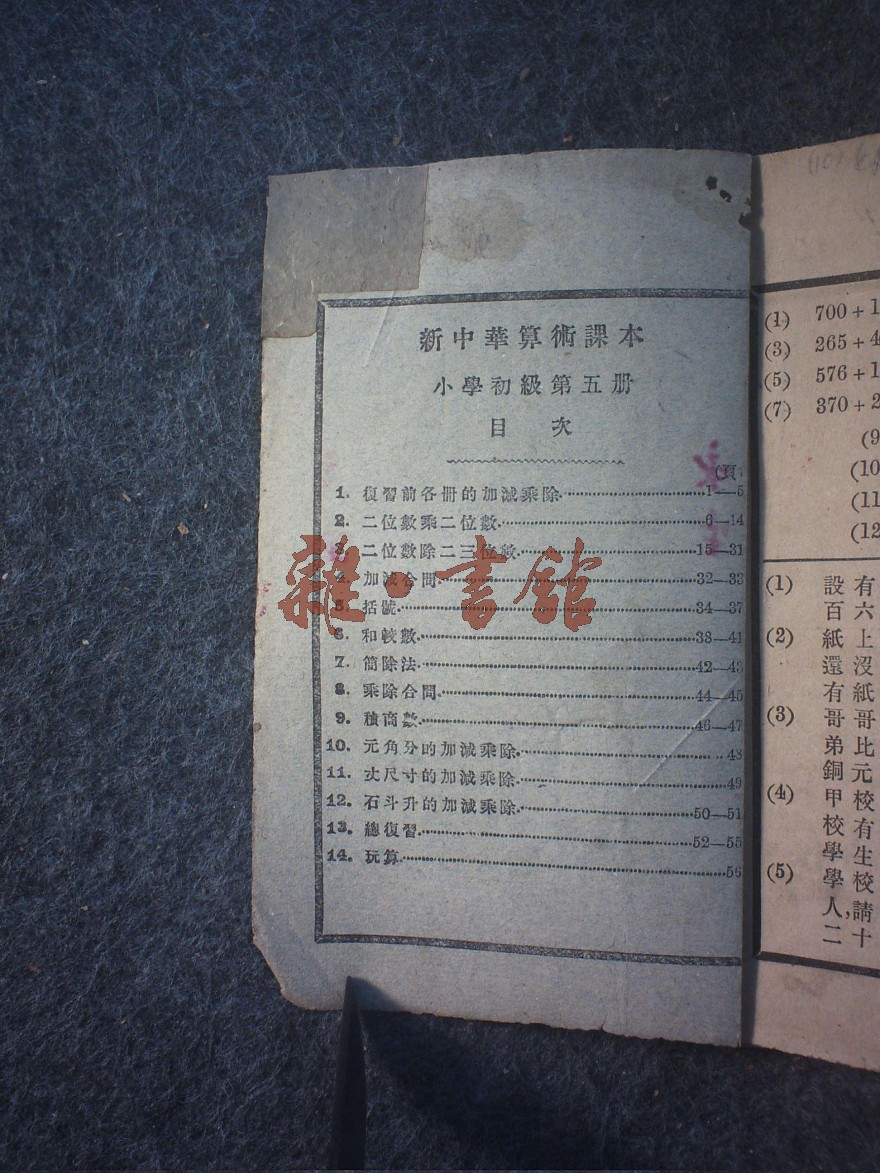 新中華算術課本
小學初級第五册
目 次
(頁)
1. 復習前各册的加減乘除 1—5
2. 二位數乘二位數 6—14
3. 二位數除二三位數 15—31
4. 加減合問 32—33
5. 括號 34—37
6. 和較數 38—41
7. 簡除法 42—43
8. 乘除合問 44—45
9. 積商數 46—47
10. 元角分的加減乘除 48
11. 丈尺寸的加減乘除 49
12. 石斗升的加減乘除 50—51
13. 總復習 52—55
14. 玩算 56
雜·書館
(1) 700+1
(3) 265+4
(5) 576+1
(7) 370+2
(9
(10
(11
(12
(1) 設有
百六
(2) 紙上
還沒
有紙
(3) 哥哥
弟比
銅元
(4) 甲校
校有
學生
(5) 學校
人,請
二十